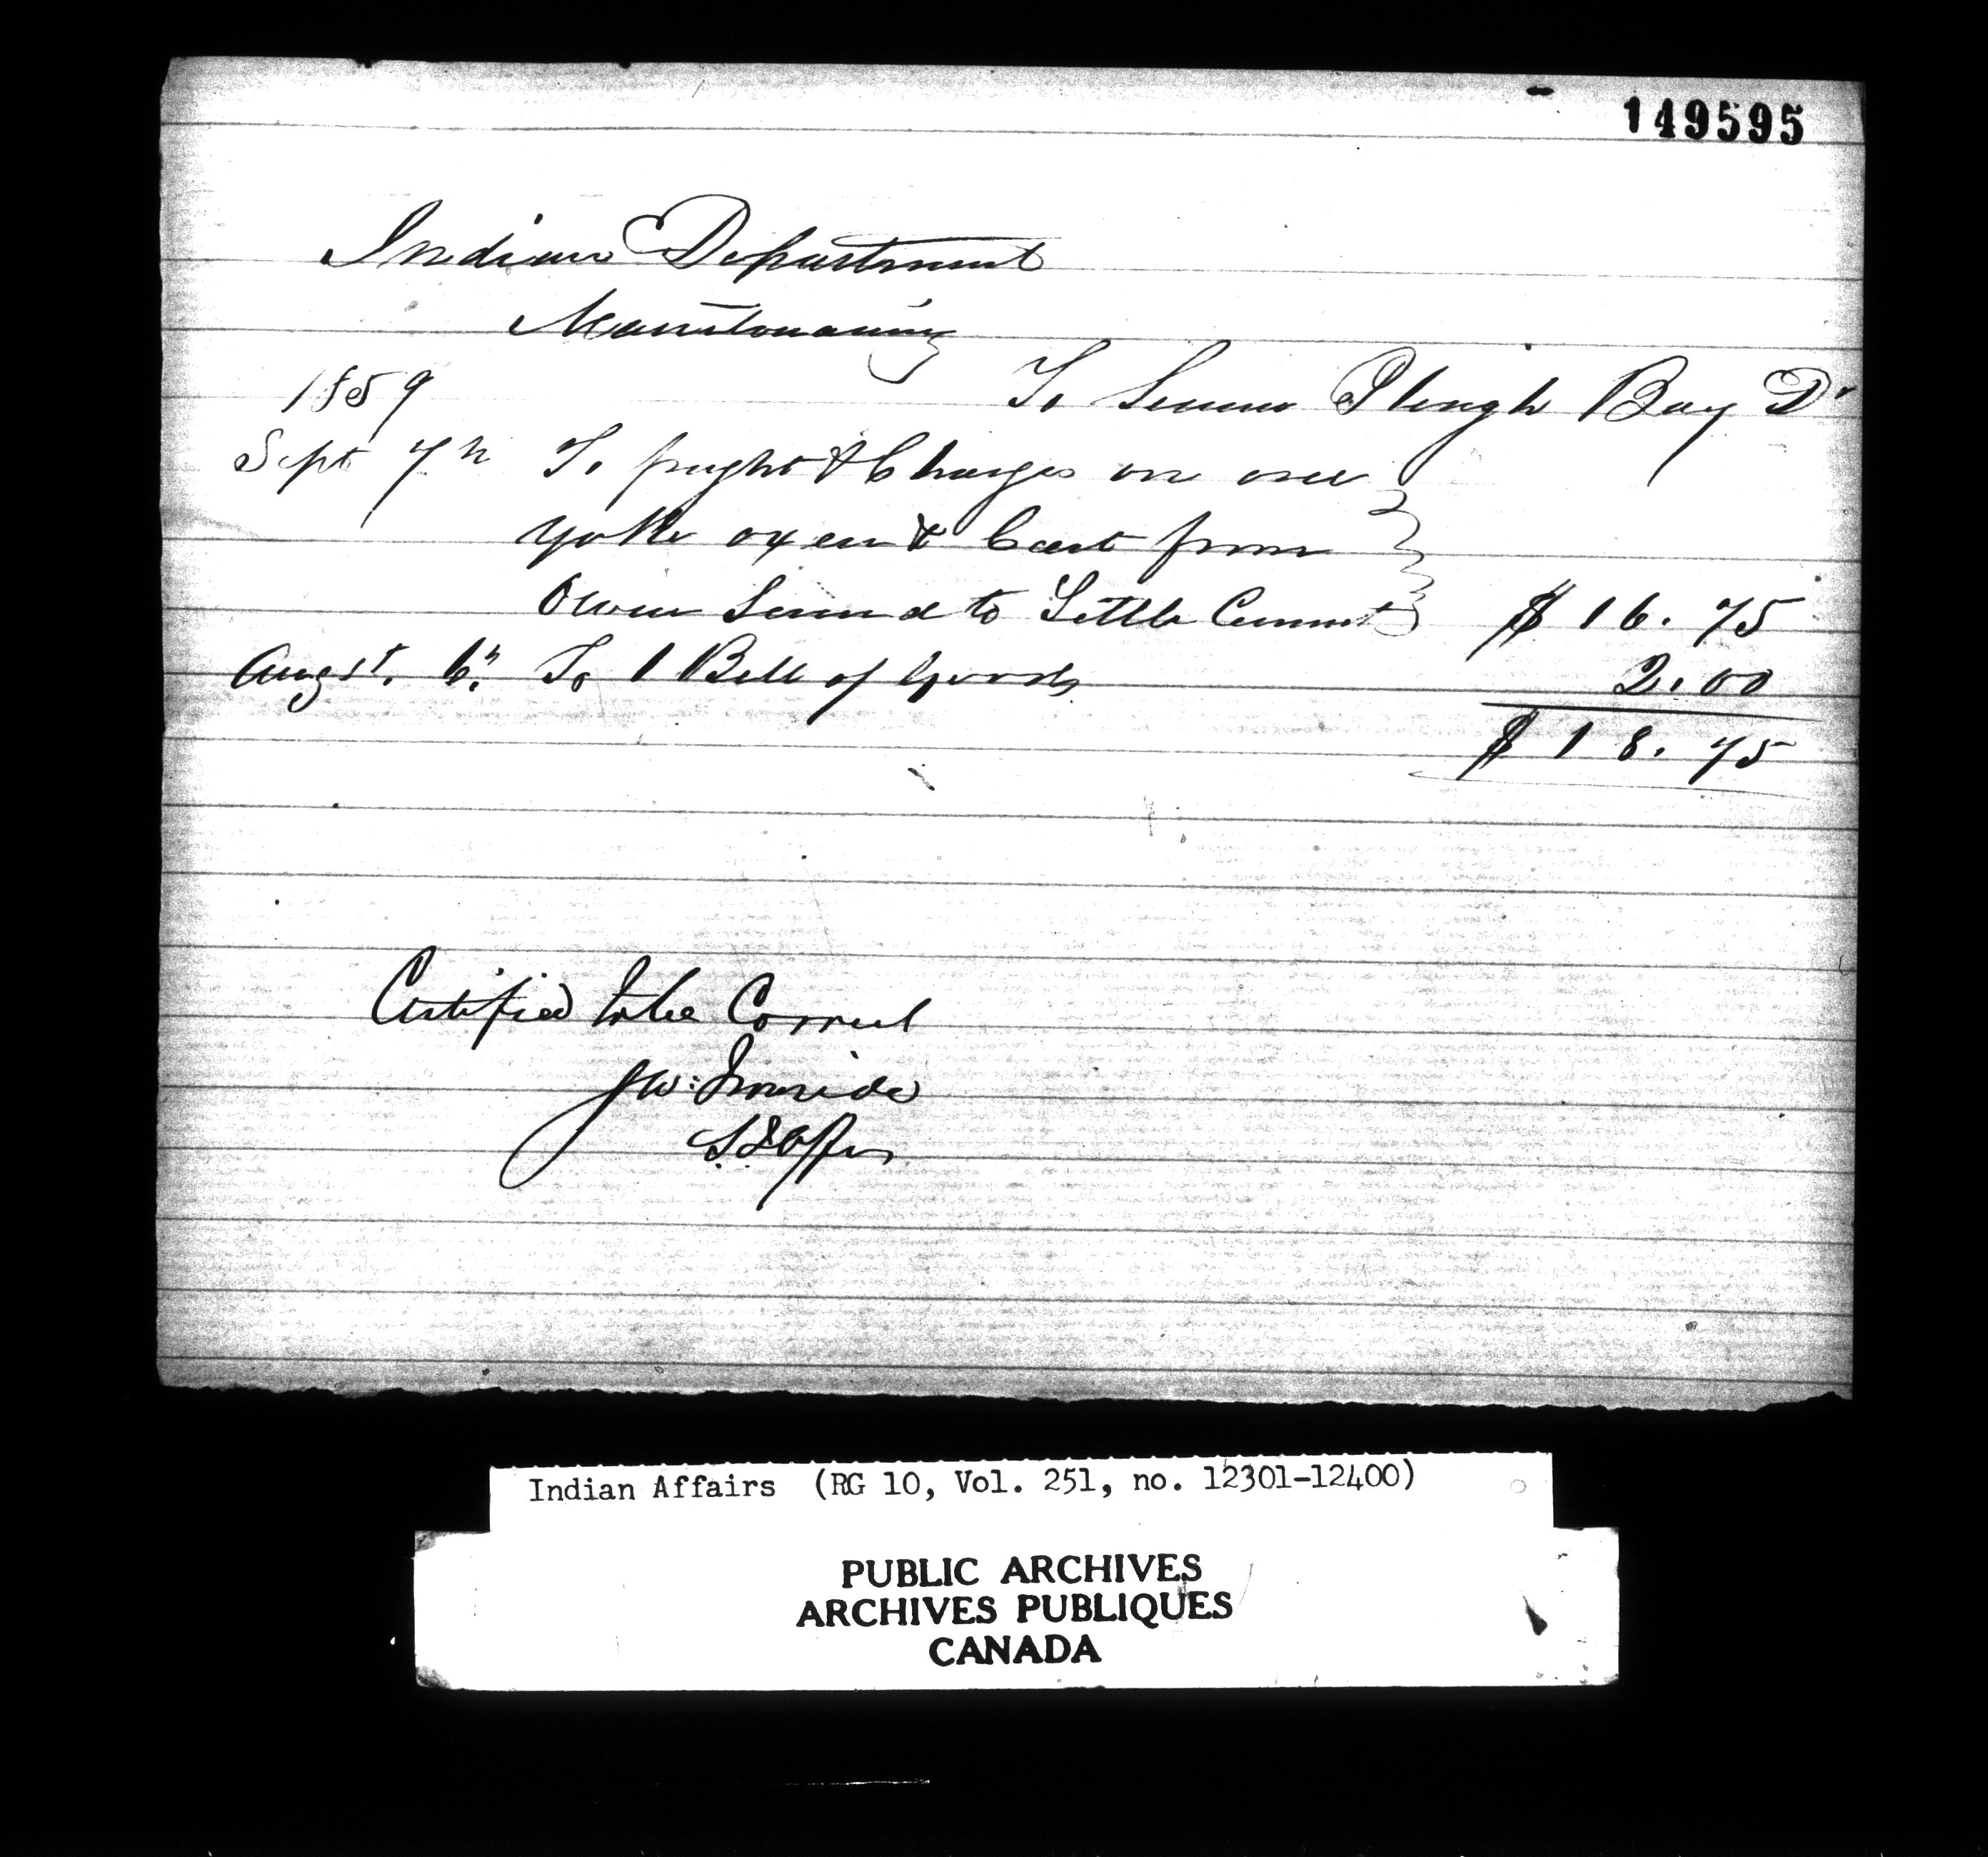 149595
Indian Department
Manitowaning
1859 To Steamer Plough Boy Dr
Sept 7th To freight & Charges on one
yoke oxen & Cart from
Owen Sound to Little Current $16.75
Augst. 6th. To 1 Bell of Goods 2.00
$18.75
Certified to be Correct
Ironside
Indian Affairs (RG 10, Vol. 251, no. 12301-12400)
PUBLIC ARCHIVES
ARCHIVES PUBLIQUES
CANADA